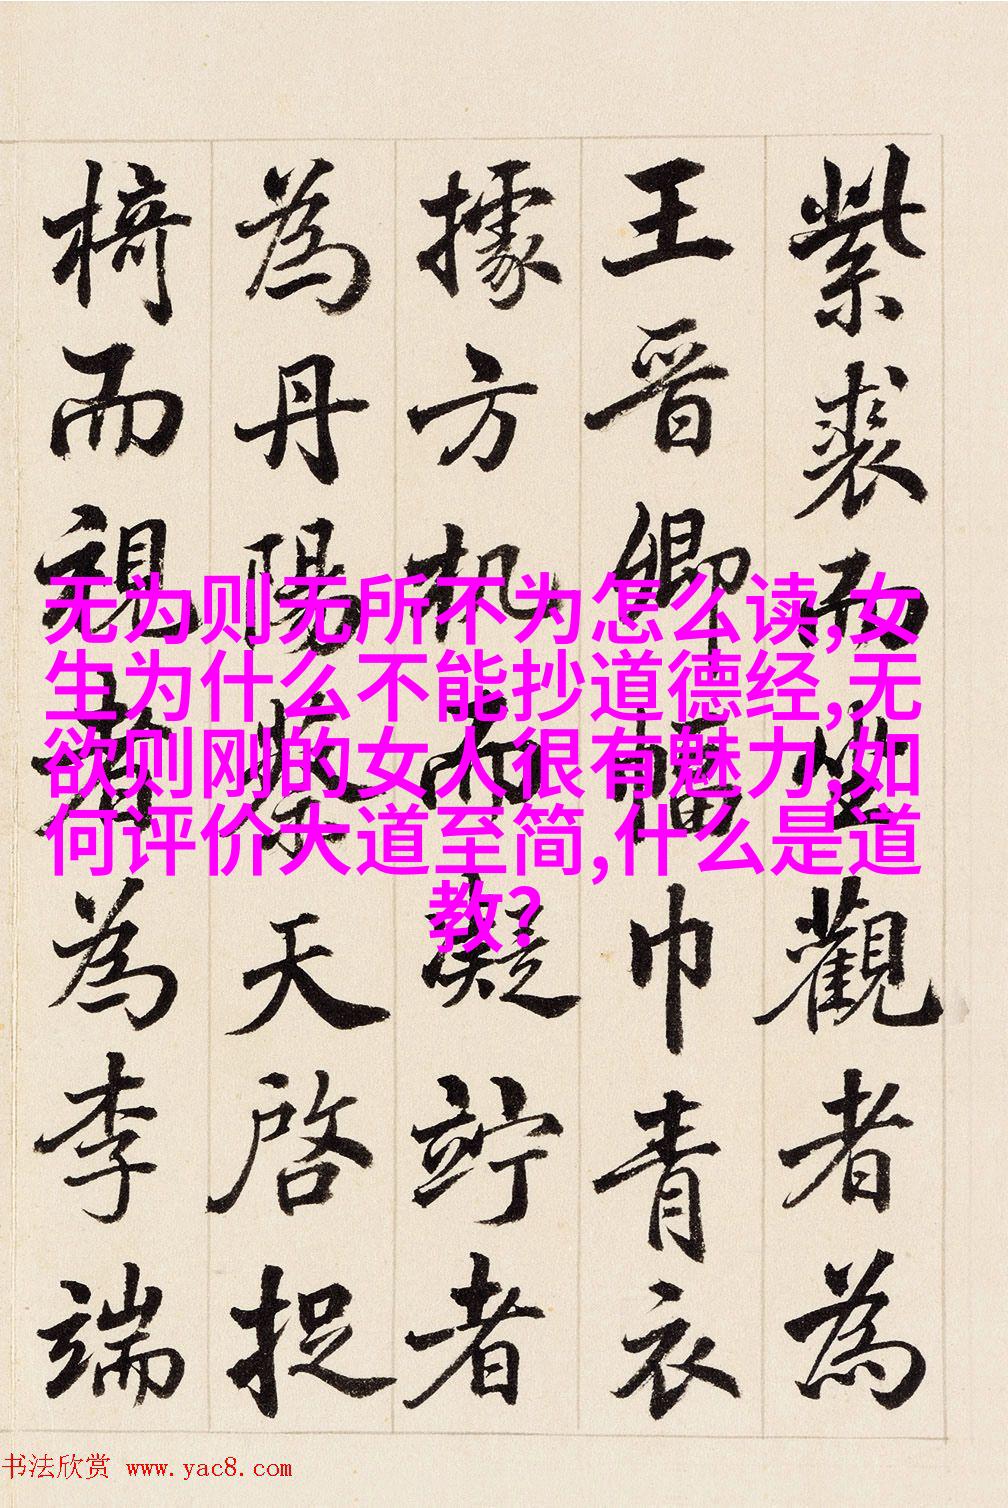 紫裘而坐觀者為
王晋卿幅巾青衣
據方机而凝竚者
為丹陽蔡天啓捉
椅而視者為李端
无为则无所不为怎么读,女
生为什么不能抄道德经,无
欲则刚的女人很有魅力,如
何评价大道至简,什么是道
教?
书法欣赏 www.yac8.com